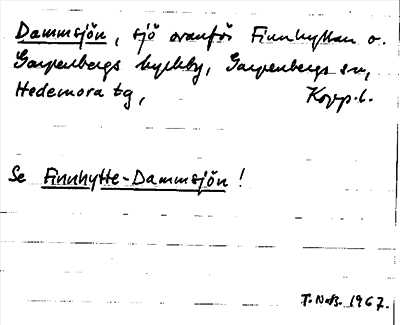 Dammsjön, sjö ovanför Finnhyttan o.
Garpenbergs kyrkby, Garpenbergs sn,
Hedemora tg, Kopp. l.
Se Finnhytte-Dammsjön!
T. N-B. 1967.